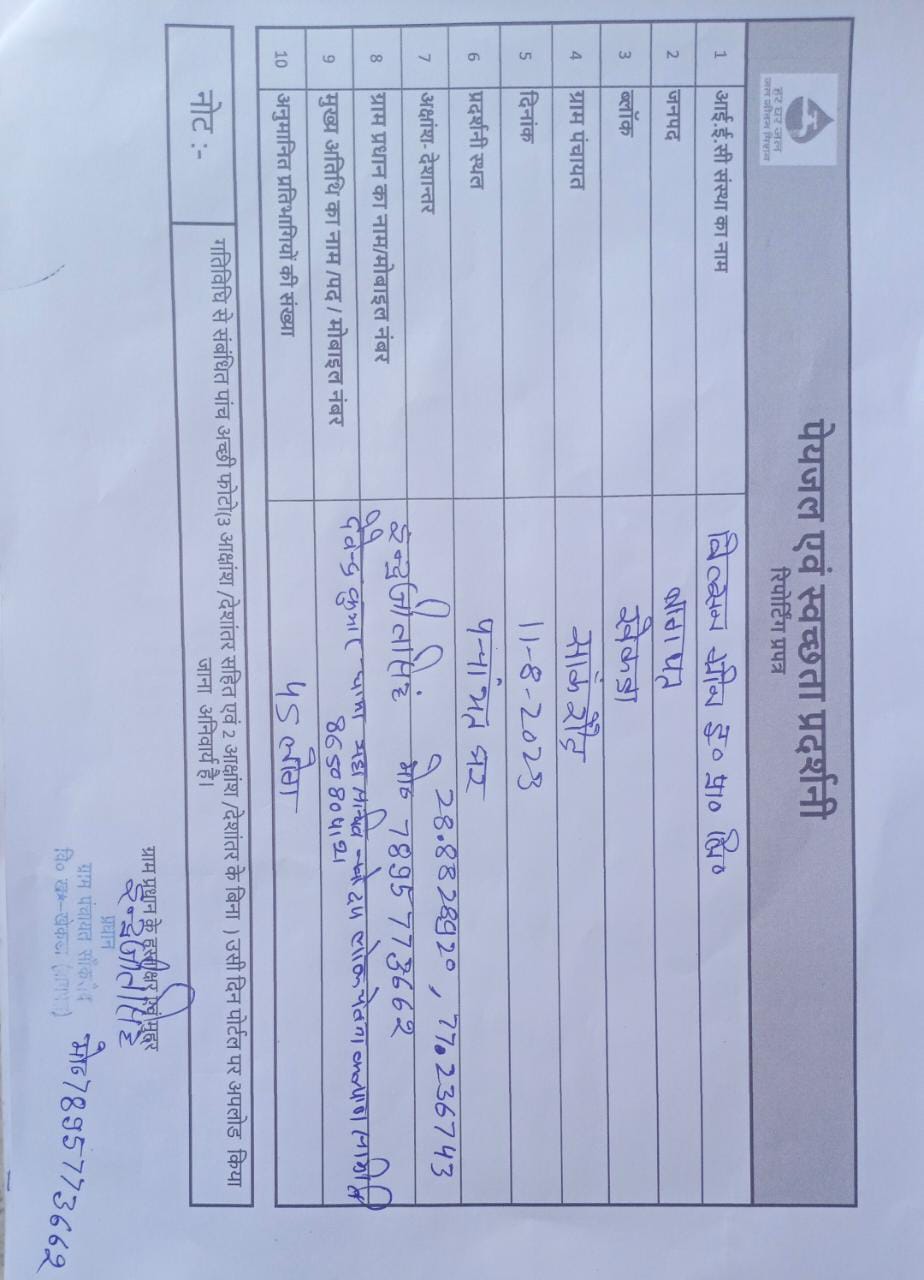 हर घर जल
जल जीवन मिशन
पेयजल एवं स्वच्छता प्रदर्शनी
रिपोर्टिंग प्रपत्र
1 आई.ई.सी संस्था का नाम
2 जनपद बागपत
3 ब्लॉक खेकडा
4 ग्राम पंचायत सांकरौद
5 दिनांक 11-8-2023
6 प्रदर्शनी स्थल पंचायत घर
7 अक्षांश-देशान्तर 28.882892°, 77.236743
8 ग्राम प्रधान का नाम/मोबाइल नंबर इन्द्रजीत सिंह मो० 7895773662
9 मुख्य अतिथि का नाम /पद / मोबाइल नंबर देवेन्द्र कुमार धामा
10 अनुमानित प्रतिभागियों की संख्या 45 लोग
नोट :- गतिविधि से संबंधित पांच अच्छी फोटो(3 आक्षांश /देशांतर सहित एवं 2 आक्षांश /देशांतर के बिना ) उसी दिन पोर्टल पर अपलोड किया
जाना अनिवार्य है।
ग्राम प्रधान के हस्ताक्षर एवं मुहर
इन्द्रजीत सिंह
प्रधान
ग्राम पंचायत सांकरौद
मो० 7895773662